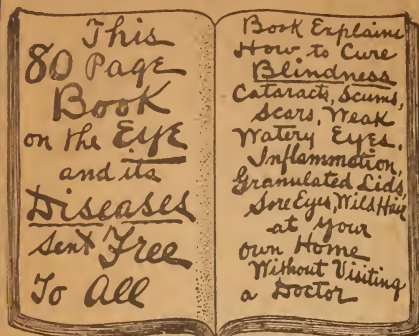 This
80 Page
Book
on the Eye
and its
Diseases
sent Free
To All
Book Explains
How to Cure
Blindness
Cataracts, Scums,
Scars, Weak
Watery Eyes,
Inflammation,
Granulated Lids,
Sore Eyes, Wild Hairs
at your
own Home
Without Visiting
a Doctor